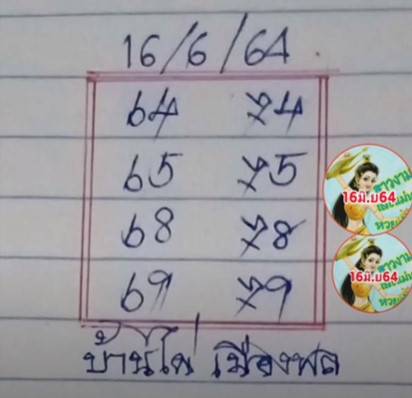 16/6/64
64 74
65 75
16มิ.ย64
68 78
16มิ.ย64
69 79
บ้านไผ่ เมืองพล